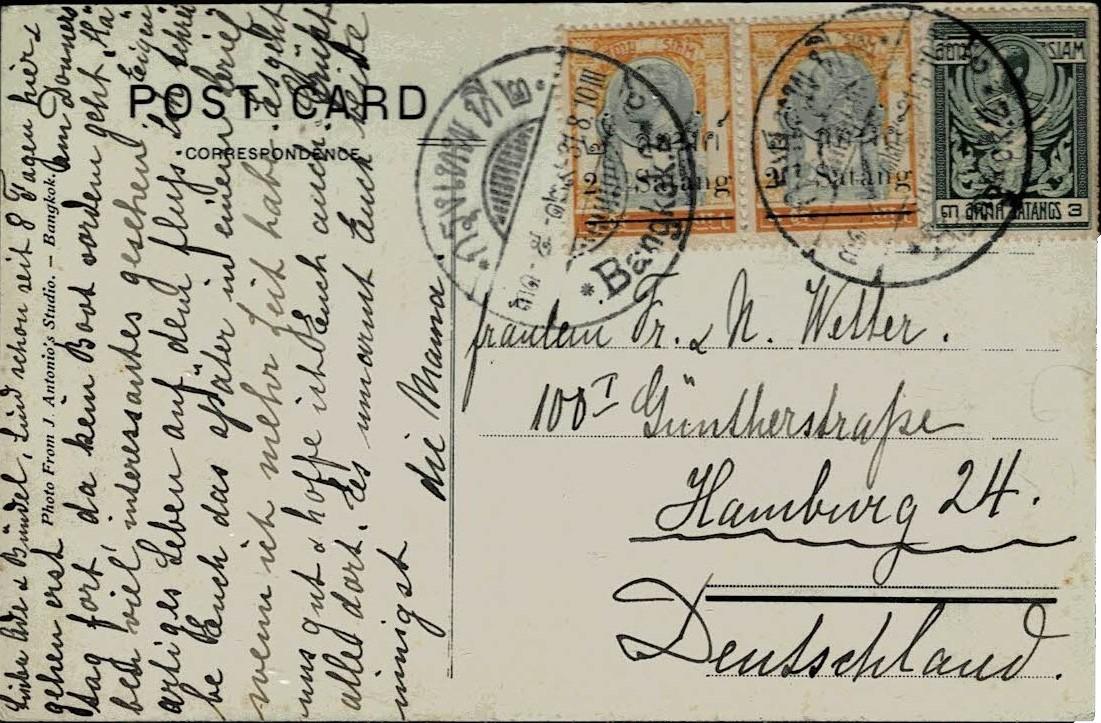 POST CARD
CORRESPONDENCE
Photo From J. Antonio's Studio. – Bangkok.
Liebe Ade & Bündel, Sind schon seit 8 Tagen hier &
gehen erst am Donners
tag fort da kein Boot vordem geht. Ha
ben viel interessantes gesehen. Eigen
artiges Leben auf dem Fluss. Ich schrei
be Euch das später in einem Brief
wenn ich mehr Zeit habe. Es geht
uns gut & hoffe ich Euch auch. Grüsst
alle dort. Es umarmt Euch beide
innigst
die Mama.
SIAM
SIAM
SIAM
2 Satang
2 Satang
๓ สตางค์ SATANGS 3
Bangkok
กรุงเทพฯ ที่ ๒
Fräulein Fr. & N. Wetter.
108 I Güntherstraße
Hamburg 24.
Deutschland.